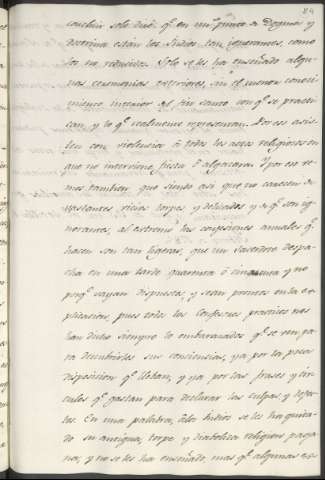 84
concluir solo diré q.e en un punto de Dogmas y
doctrina están los Indios tan ignorantes, como
los no reducidos. Solo se les ha enseñado algu-
nas ceremonias exteriores, sin el menor conoci-
miento interior del fin santo con q.e se practi-
can, y lo q.e realmente representan. Por eso asis-
ten con violencia á todos los actos religiosos en
que no interviene fiesta ó algazara. Por
mos tambien, que siendo así que no carecen de
bastantes vicios torpes y delicados y q.e son ig-
norantes, al extremo las confesiones anuales q.e
hacen son tan ligeras, que un sacerdote despa-
cha en una tarde quarenta ó cinquenta y no
porq.e vayan dispuestos, y sean prontos en la ex-
plicacion, pues todos los confesores practicos nos
han dicho siempre lo embarazados q.e se ven pa-
ra descubrirles sus conciencias, ya por la poca
disposicion q.e llevan, y ya por las frases y cir-
culos q.e gastan para declarar las culpas y defec-
tos. En una palabra, á los Indios se les ha quita-
do su antigua, torpe y diabolica religion paga-
na, y no se les ha enseñado, mas q.e algunas ex-